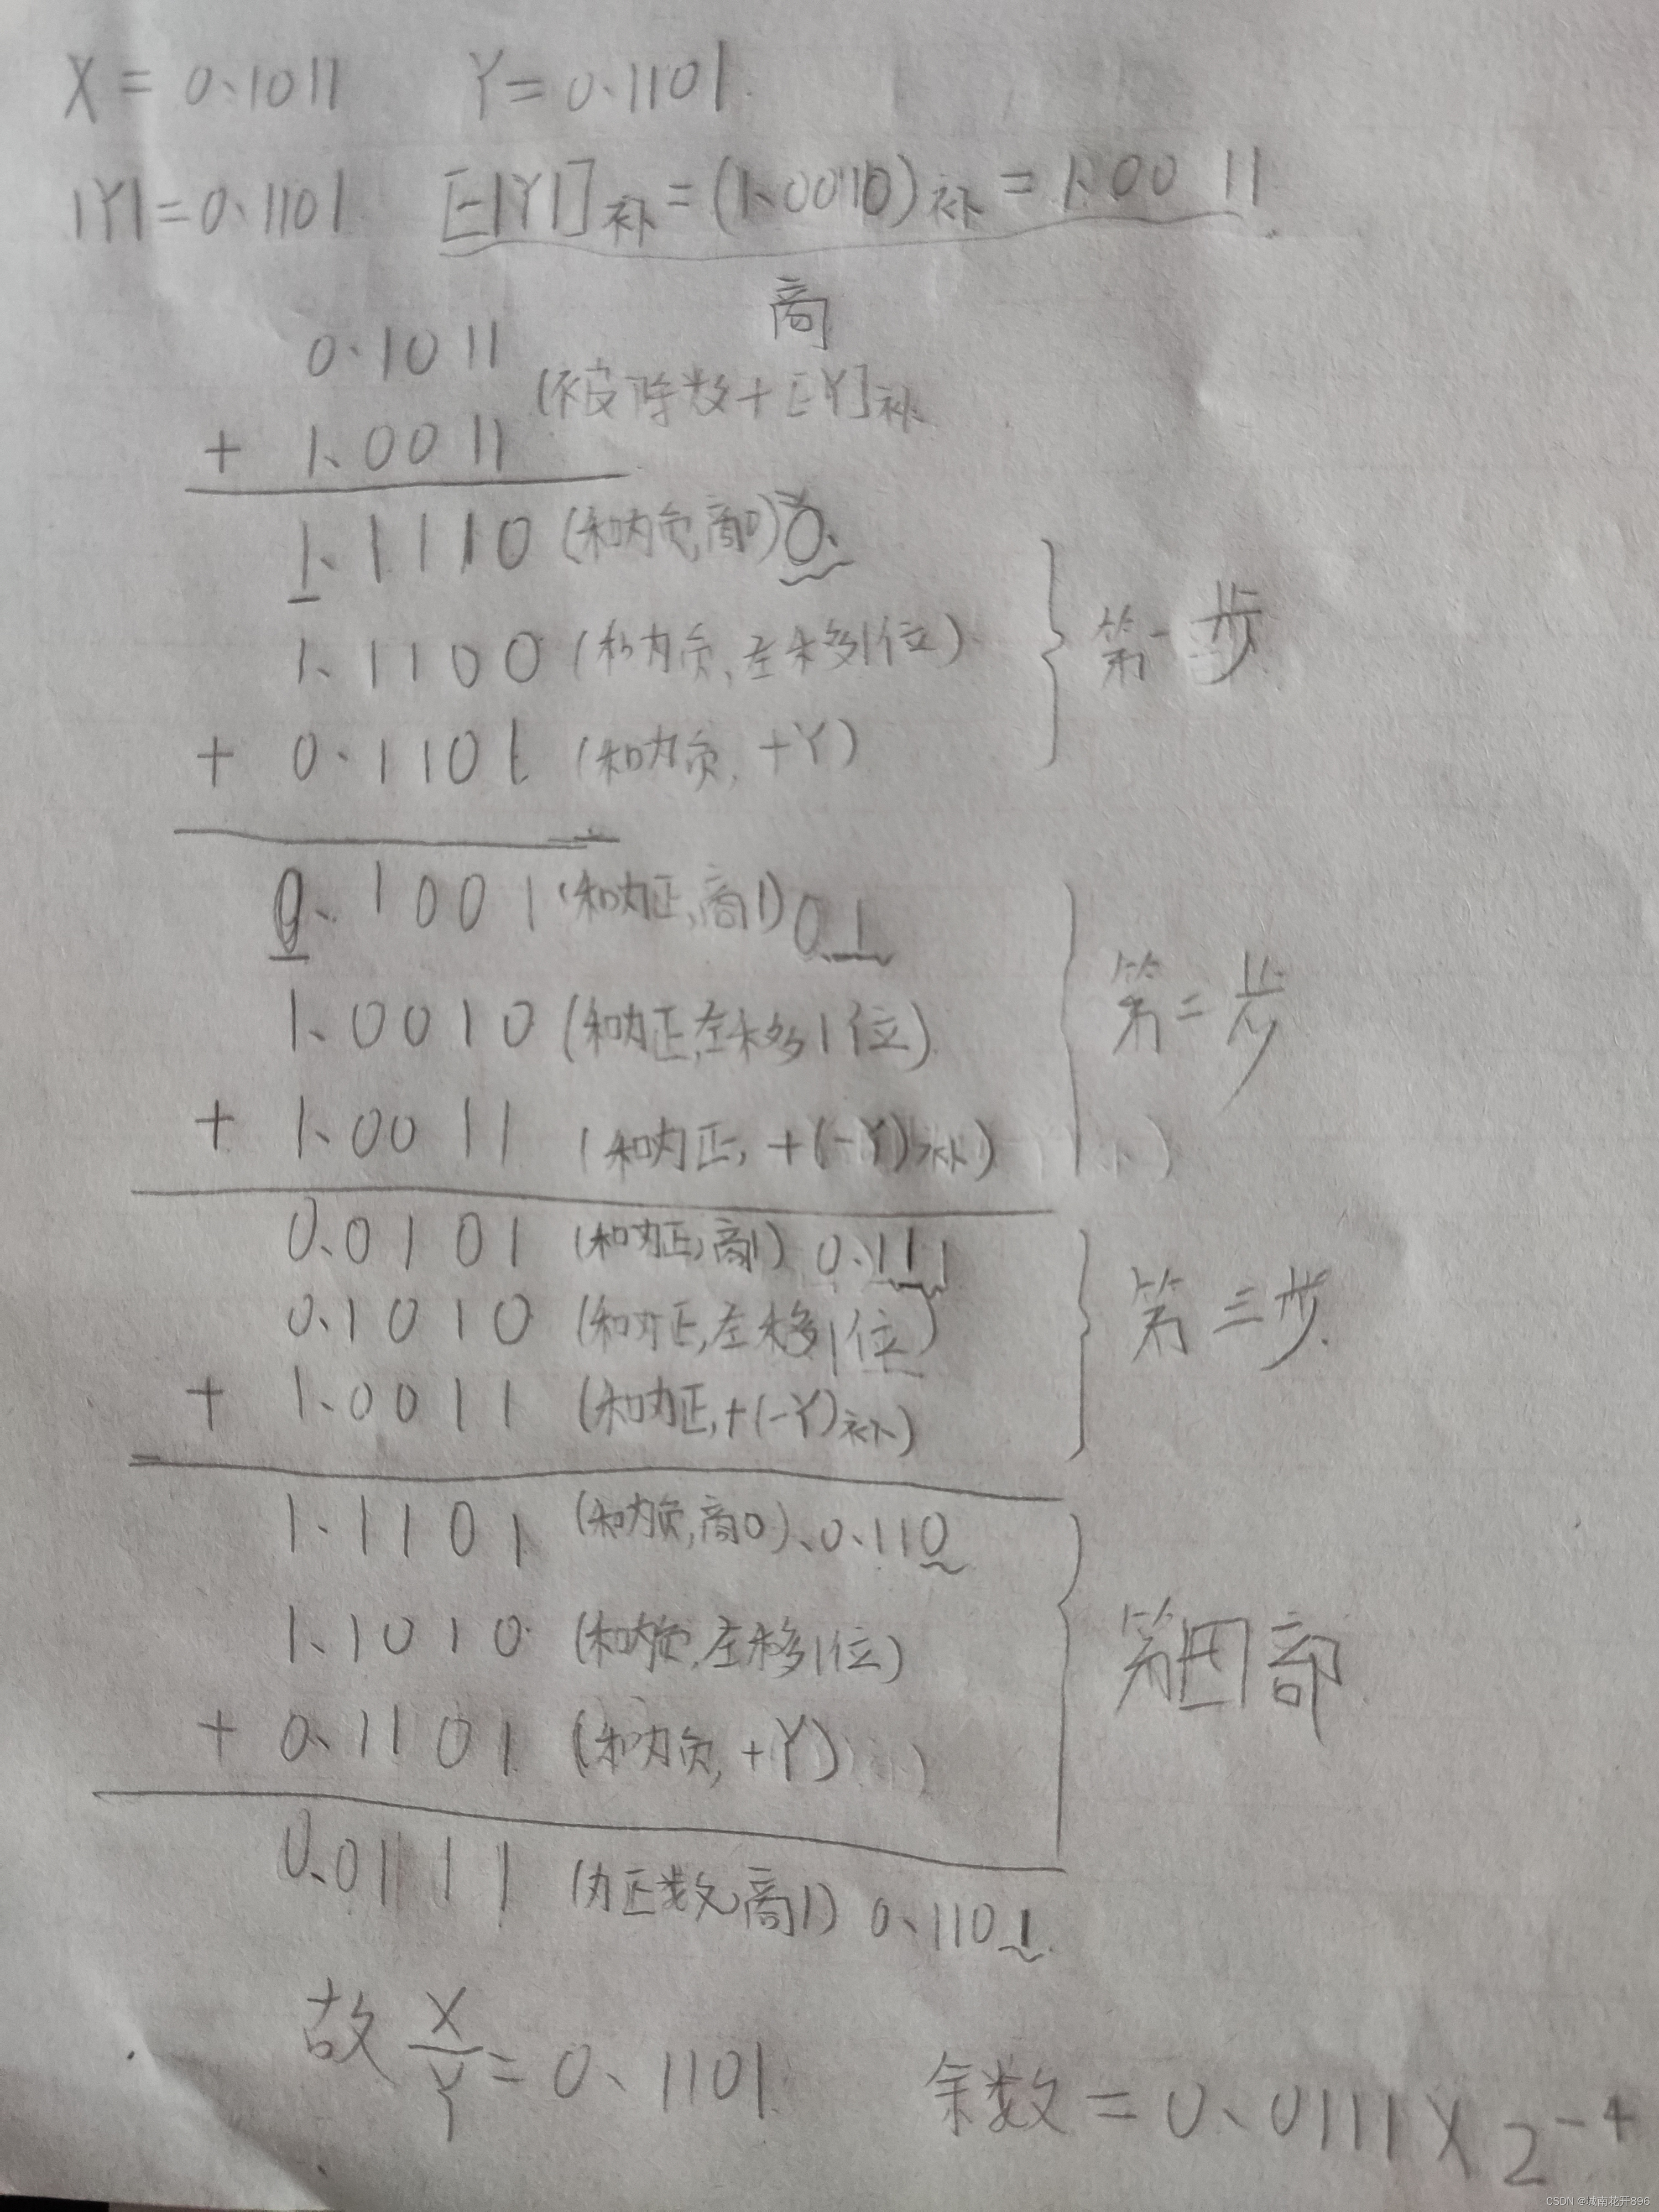 X = 0.1011 Y = 0.1101
|Y| = 0.1101 [-|Y|]补 = (1.0010)补 = 1.0011
商
0.1011
(被除数+[-Y]补
+ 1.0011
1.1110 (和为负,商0) 0.
1.1100 (和为负,左移1位)
第一步
+ 0.1101 (和为负,+Y)
0.1001 (和为正,商1) 0.1
1.0010 (和为正,左移1位)
第二步
+ 1.0011 (和为正,+(-Y)补)
0.0101 (和为正,商1) 0.11
0.1010 (和为正,左移1位)
第三步
+ 1.0011 (和为正,+(-Y)补)
1.1101 (和为负,商0) 0.110
1.1010 (和为负,左移1位)
第四部
+ 0.1101 (和为负,+Y)
0.0111 (为正数,商1) 0.1101
故 X/Y = 0.1101 余数 = 0.0111 X 2^-4
CSDN @城南花开896